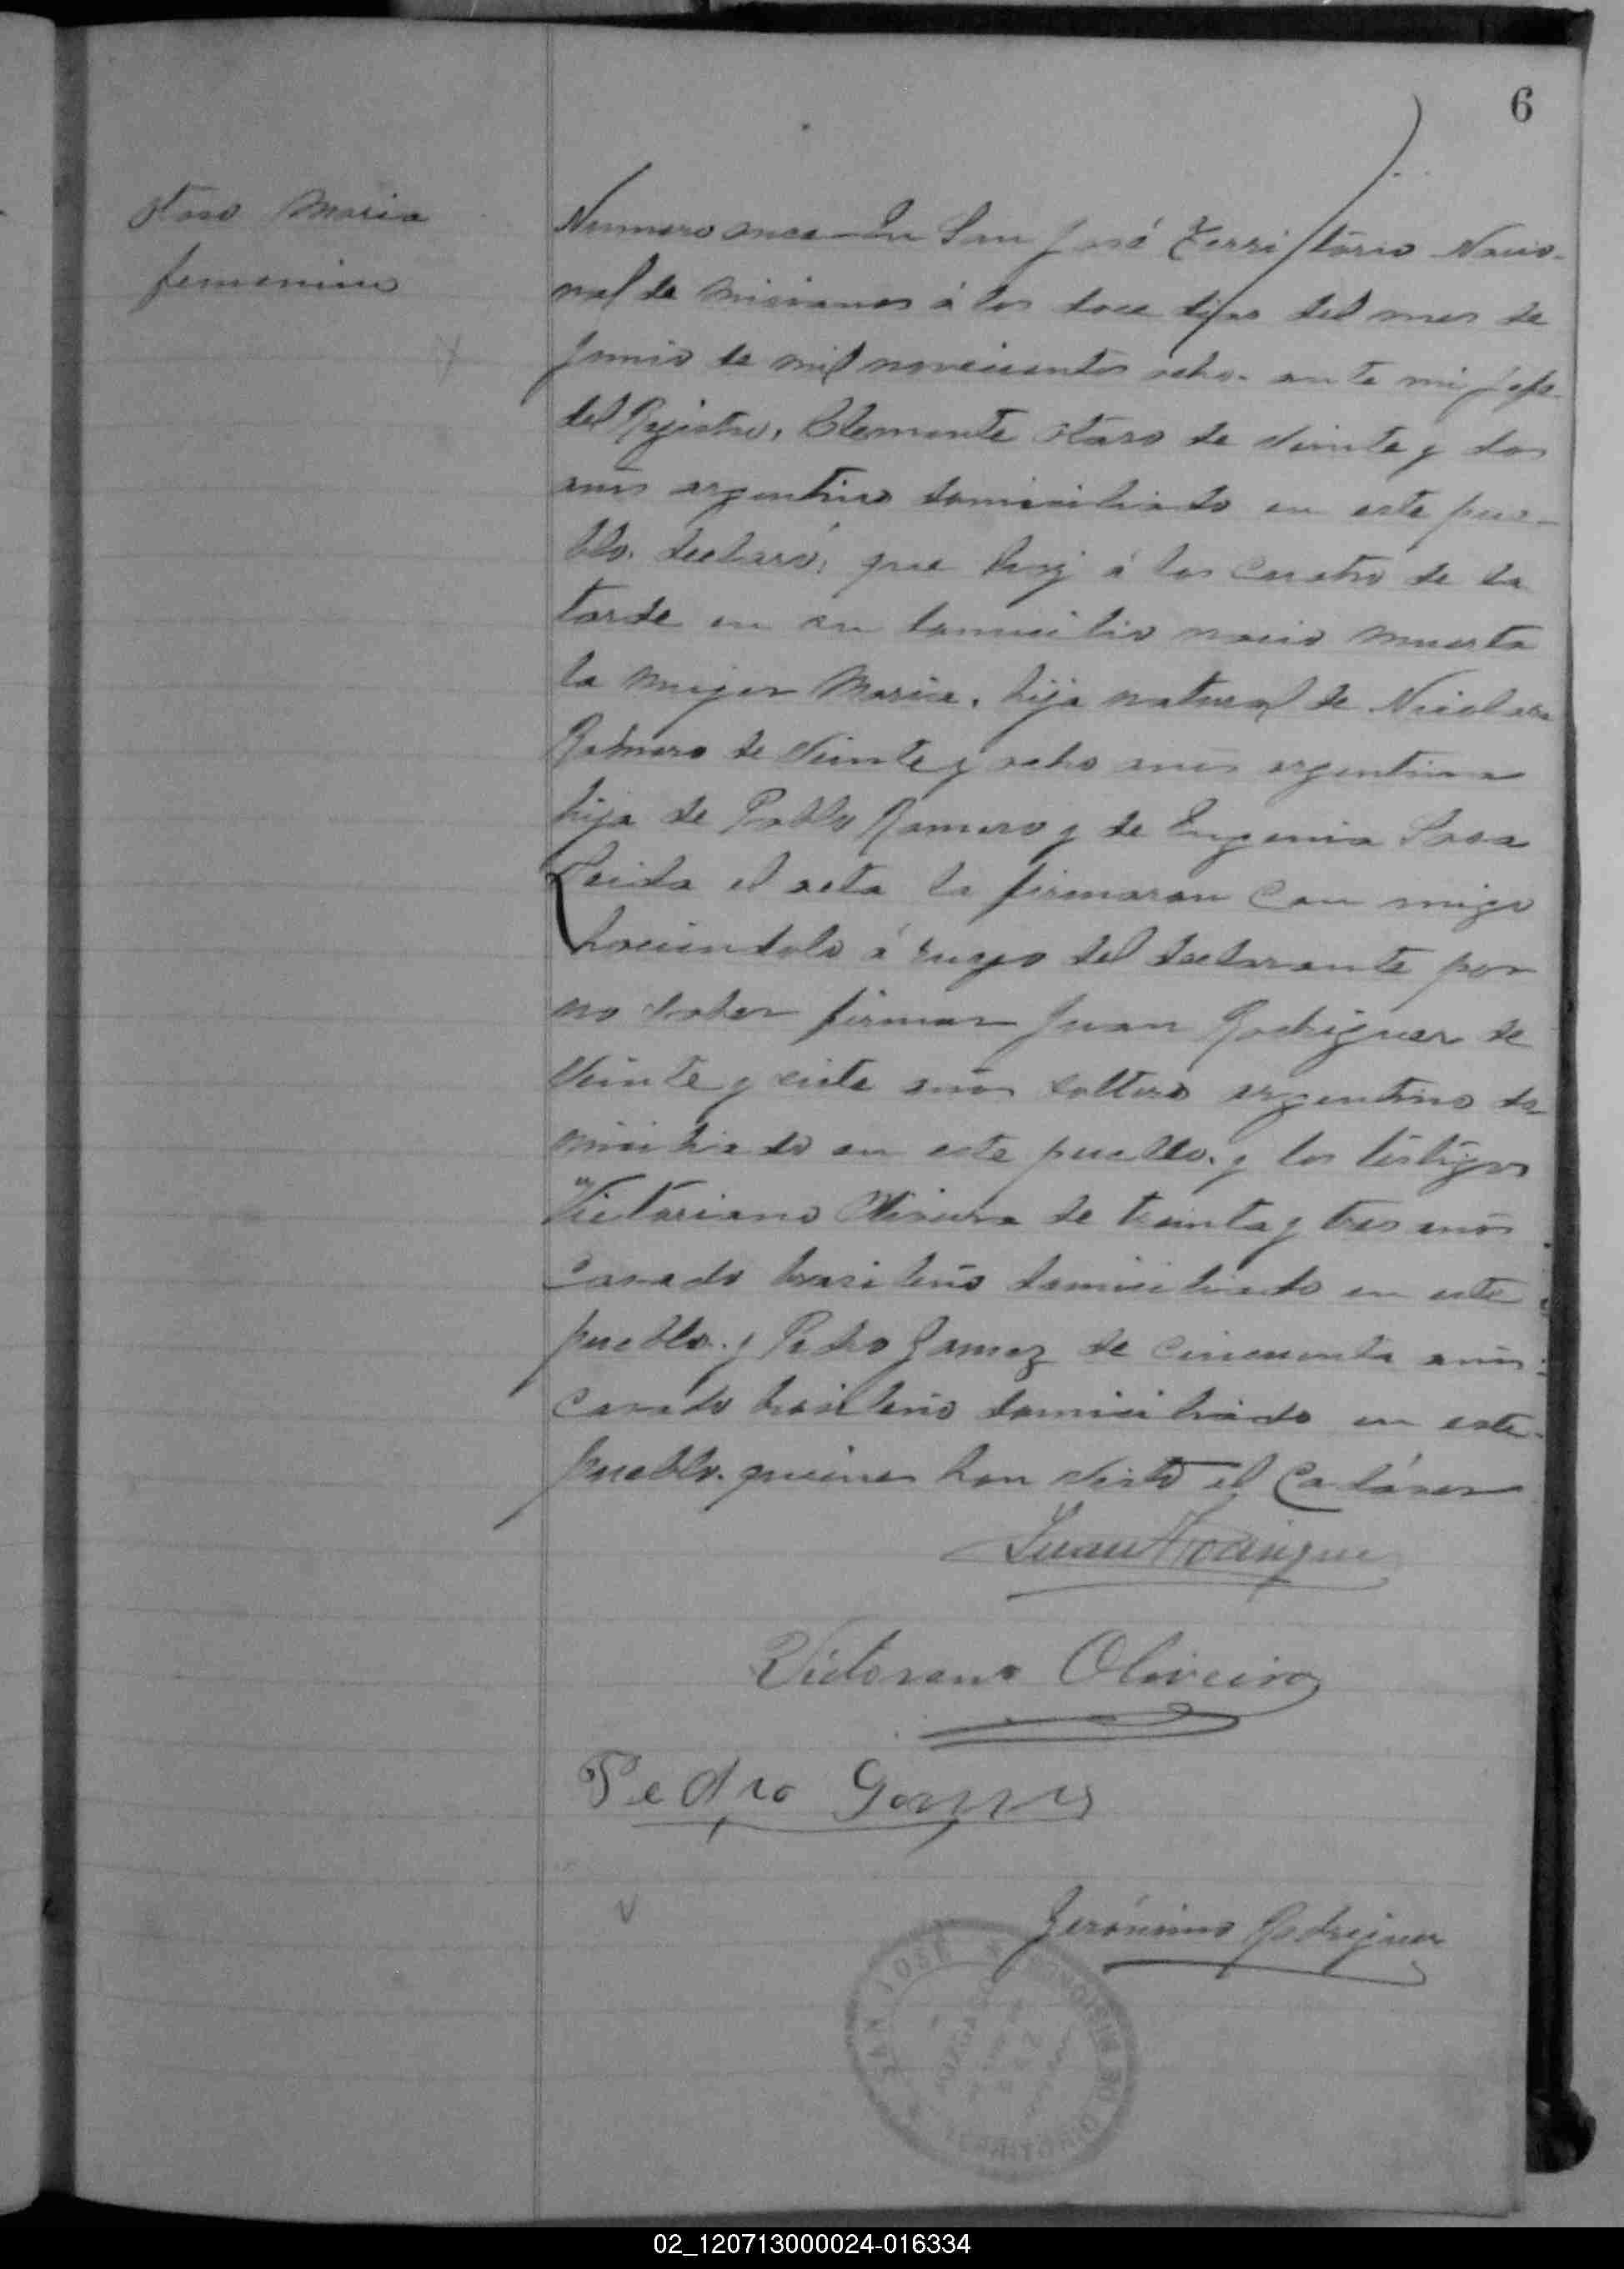 6
Otaso Maria
femenino
Numero once - En San José Territorio Nacio-
nal de Misiones á los doce dias del mes de
Junio de mil novecientos ocho. ante mi Jefe
del Rejistro, Clemente Otaso de Veinte y dos
años argentino domiciliado en este pue-
blo. declaró: que hoy á las cuatro de la
tarde en su domicilio nació muerta
la mujer Maria. hija natural de Nicolasa
Romero de Veinte y ocho años argentina
hija de Pablo Romero y de Eugenia Sosa
Leida el acta la firmaron con migo
haciendolo á ruego del declarante por
no saber firmar Juan Rodriguez de
Veinte y siete años soltero argentino do
miciliado en este pueblo. y los testigos
Victoriano Oliveira de treinta y tres años
casado brasileño domiciliado en este
pueblo. y Pedro Gomez de cincuenta años
casado brasileño domiciliado en este
pueblo. quienes han visto el Cadáver
Juan Rodriguez
Victorano Oliveira
Pedro Gomes
Jerónimo Rodriguez
SAN JOSÉ
JUZGADO DE PAZ
TERRITORIO DE MISIONES
02_120713000024-016334